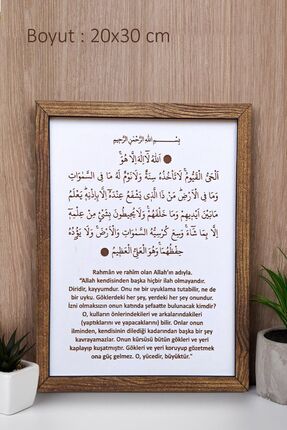 Boyut : 20x30 cm
بِسْمِ اللّٰهِ الرَّحْمٰنِ الرَّحِيمِ
اَللّٰهُ لَٓا اِلٰهَ اِلَّا هُوَۚ
اَلْحَيُّ الْقَيُّومُۚ لَا تَأْخُذُهُ سِنَةٌ وَلَا نَوْمٌۜ لَهُ مَا فِي السَّمٰوَاتِ
وَمَا فِي الْاَرْضِۜ مَنْ ذَا الَّذ۪ي يَشْفَعُ عِنْدَهُٓ اِلَّا بِاِذْنِه۪ۜ يَعْلَمُ
مَا بَيْنَ اَيْد۪يهِمْ وَمَا خَلْفَهُمْۚ وَلَا يُح۪يطُونَ بِشَيْءٍ مِنْ عِلْمِه۪ٓ
اِلَّا بِمَا شَٓاءَۚ وَسِعَ كُرْسِيُّهُ السَّمٰوَاتِ وَالْاَرْضَۚ وَلَا يَؤُ۫دُهُ
حِفْظُهُمَاۚ وَهُوَ الْعَلِيُّ الْعَظ۪يمُ
Rahmân ve rahîm olan Allah'ın adıyla.
"Allah kendisinden başka hiçbir ilah olmayandır.
Diridir, kayyumdur. Onu ne bir uyuklama tutabilir, ne de
bir uyku. Göklerdeki her şey, yerdeki her şey onundur.
İzni olmaksızın onun katında şefaatte bulunacak kimdir?
O, kulların önlerindekileri ve arkalarındakileri
(yaptıklarını ve yapacaklarını) bilir. Onlar onun
ilminden, kendisinin dilediği kadarından başka bir şey
kavrayamazlar. Onun kürsüsü bütün gökleri ve yeri
kaplayıp kuşatmıştır. Gökleri ve yeri koruyup gözetmek
ona güç gelmez. O, yücedir, büyüktür."